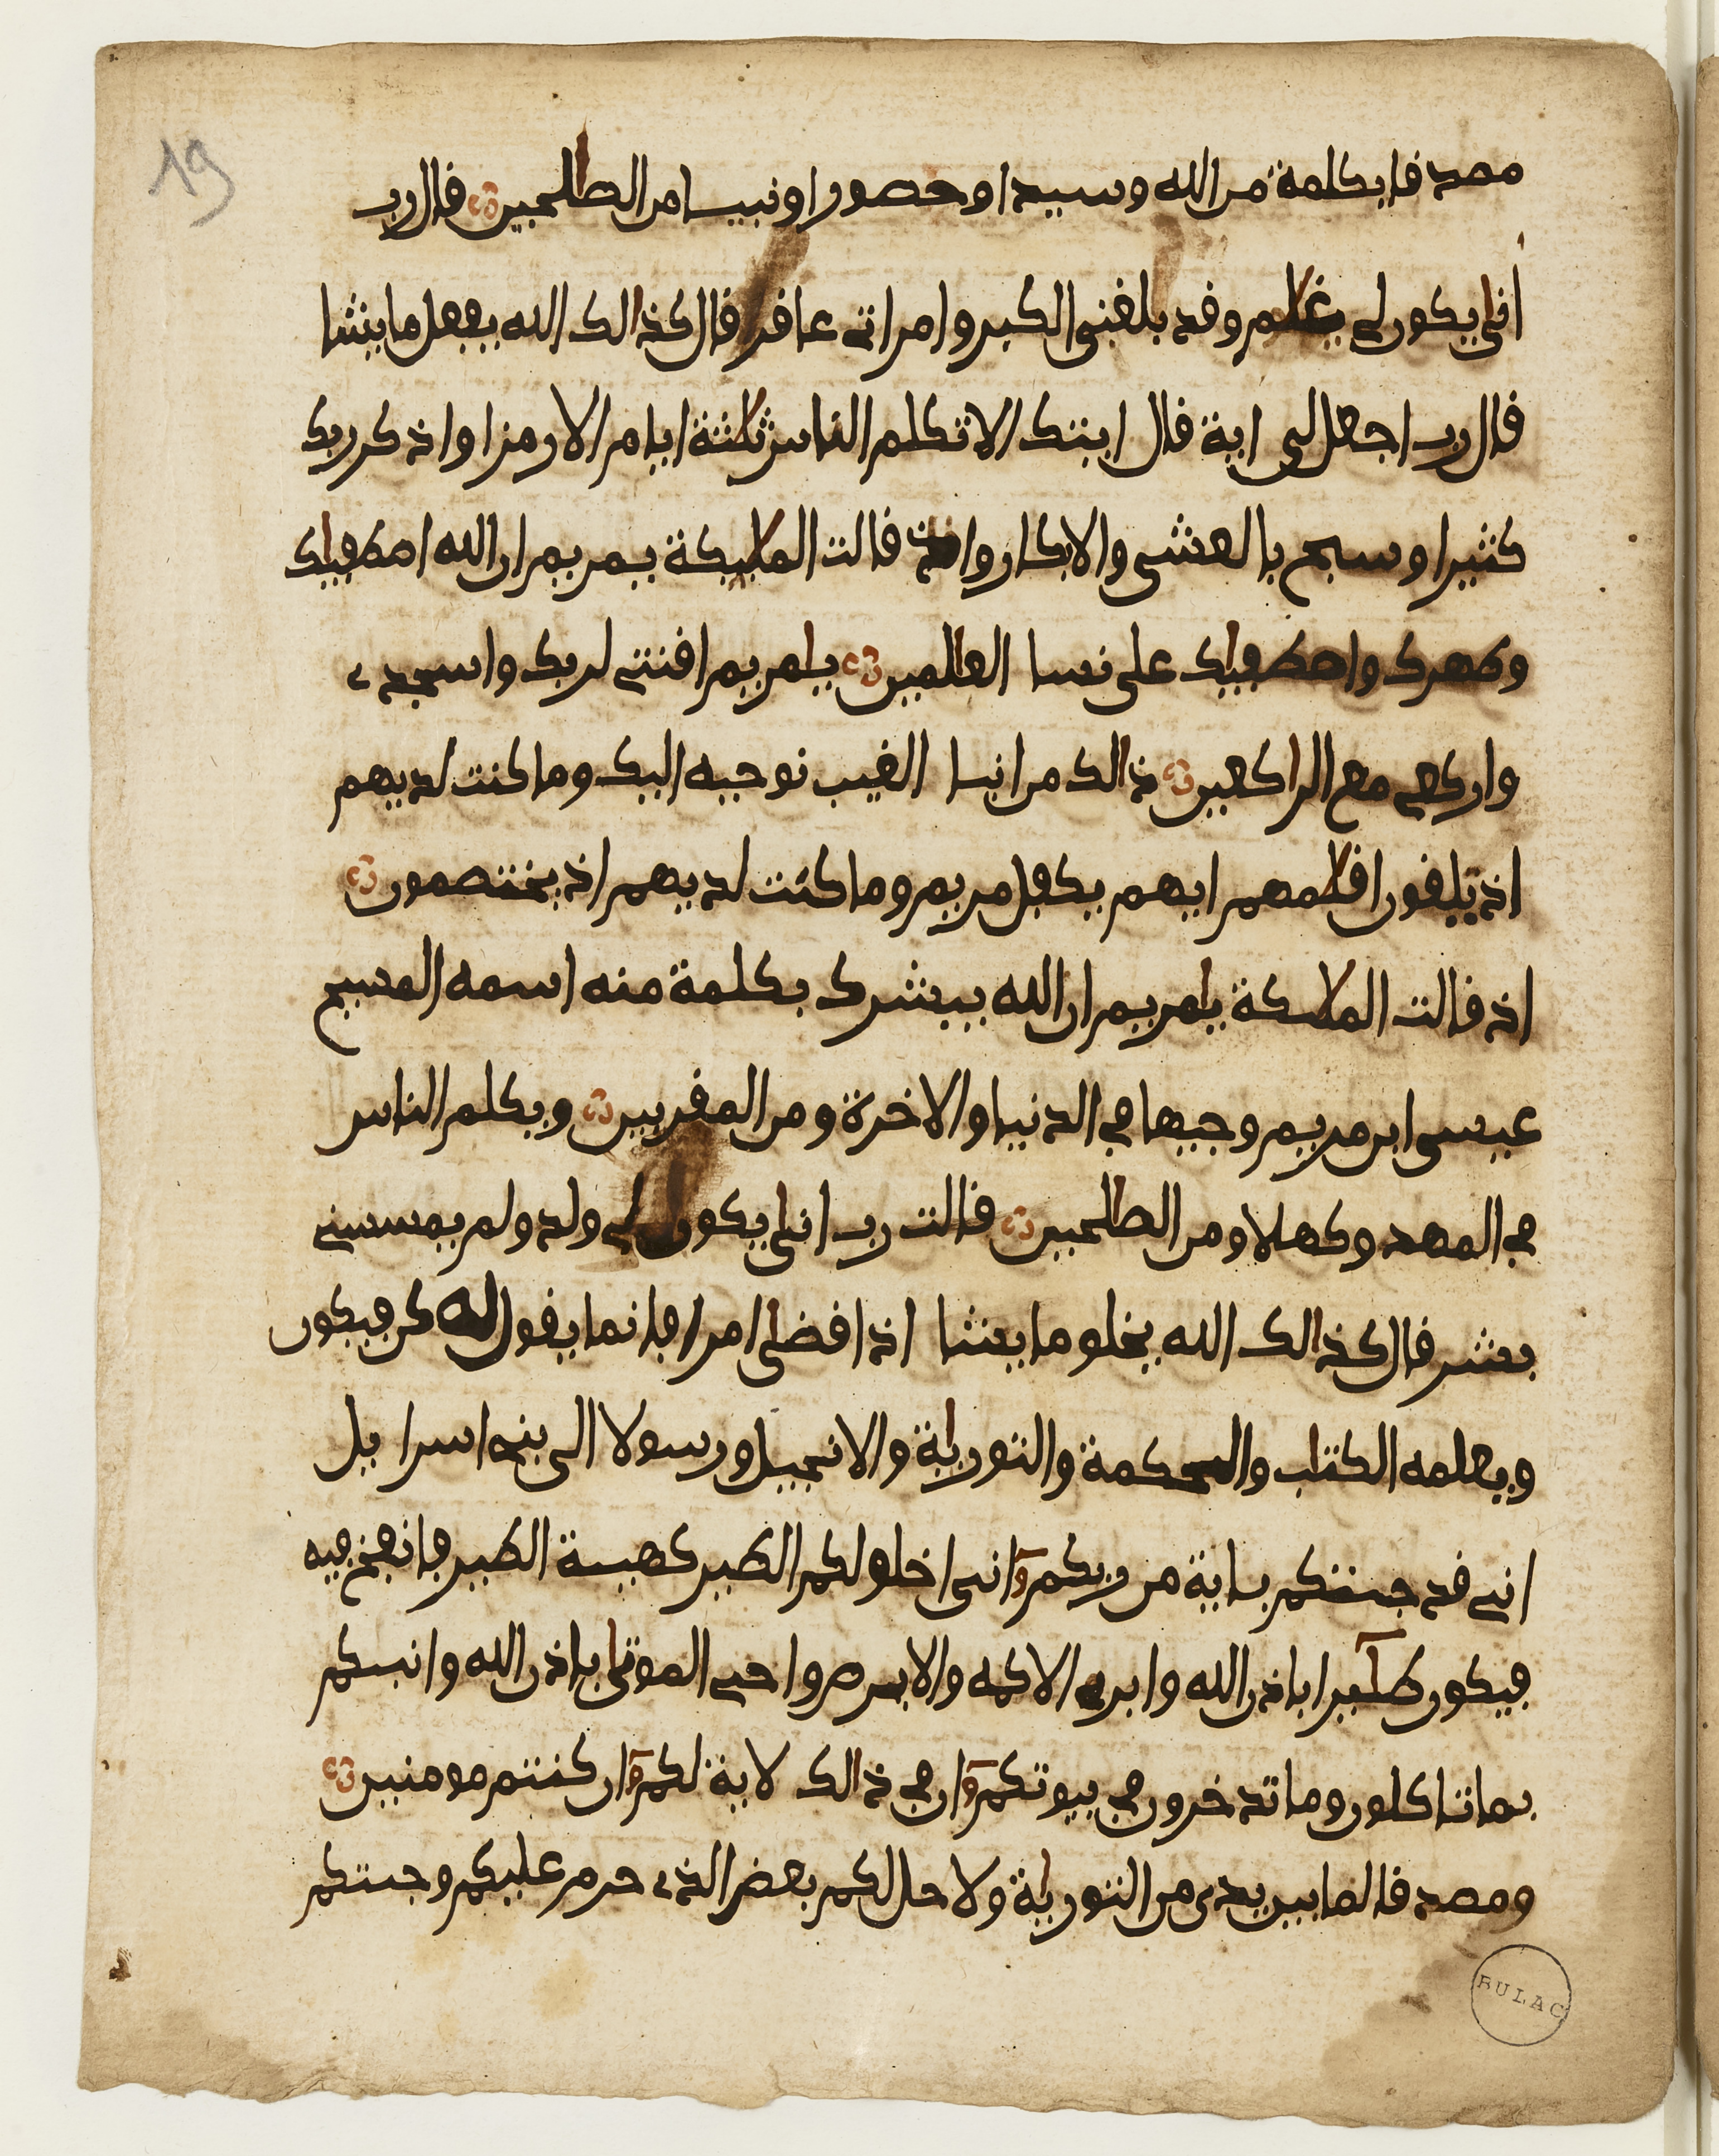 19
مصدقا بكلمة من الله وسيدا وحصورا ونبيا من الصلحين قال رب
انى يكون لي غلم وقد بلغني الكبر وامراتي عافر قال كذالك الله يفعل ما يشا
قال رب اجعل لي اية قال ايتك الا تكلم الناس ثلثة ايام الا رمزا واذكر ربك
كثيرا وسبح بالعشي والابكار واذ قالت المليكة يمريم ان الله اصطفيك
وطهرك واصطفيك على نسا العلمين يامريم اقنتي لربك واسجدي
واركعي مع الراكعين ذالك من انبا الغيب نوحيه اليك وما كنت لديهم
اذ يلقون اقلمهم ايهم يكفل مريم وما كنت لديهم اذ يختصمون
اذ قالت الملاىكة يامريم ان الله يبشرك بكلمة منه اسمه المسيح
عيسى ابن مريم وجيها في الدنيا والاخرة ومن المقربين ويكلم الناس
في المهد وكهلا ومن الصلحين قالت رب انى يكون لي ولد ولم يمسسني
بشر قال كذالك الله يخلق ما يشا اذا قضى امرا فانما يقول له كن فيكون
ويعلمه الكتاب والحكمة والتورية والانجيل ورسولا الى بني اسرايل
اني قد جىتكم باية من ربكم اني اخلق لكم الطير كهية الطير فانفخ فيه
فيكون طيرا باذن الله وابرى الاكمه والابرص واحي الموتى باذن الله وانبىكم
بما تاكلون وما تدخرون في بيوتكم ان في ذالك لاية لكم ان كنتم مومنين
ومصدقا لما بين يدى من التورية ولاحل لكم بعض الذي حرم عليكم وجىتكم
BULAC